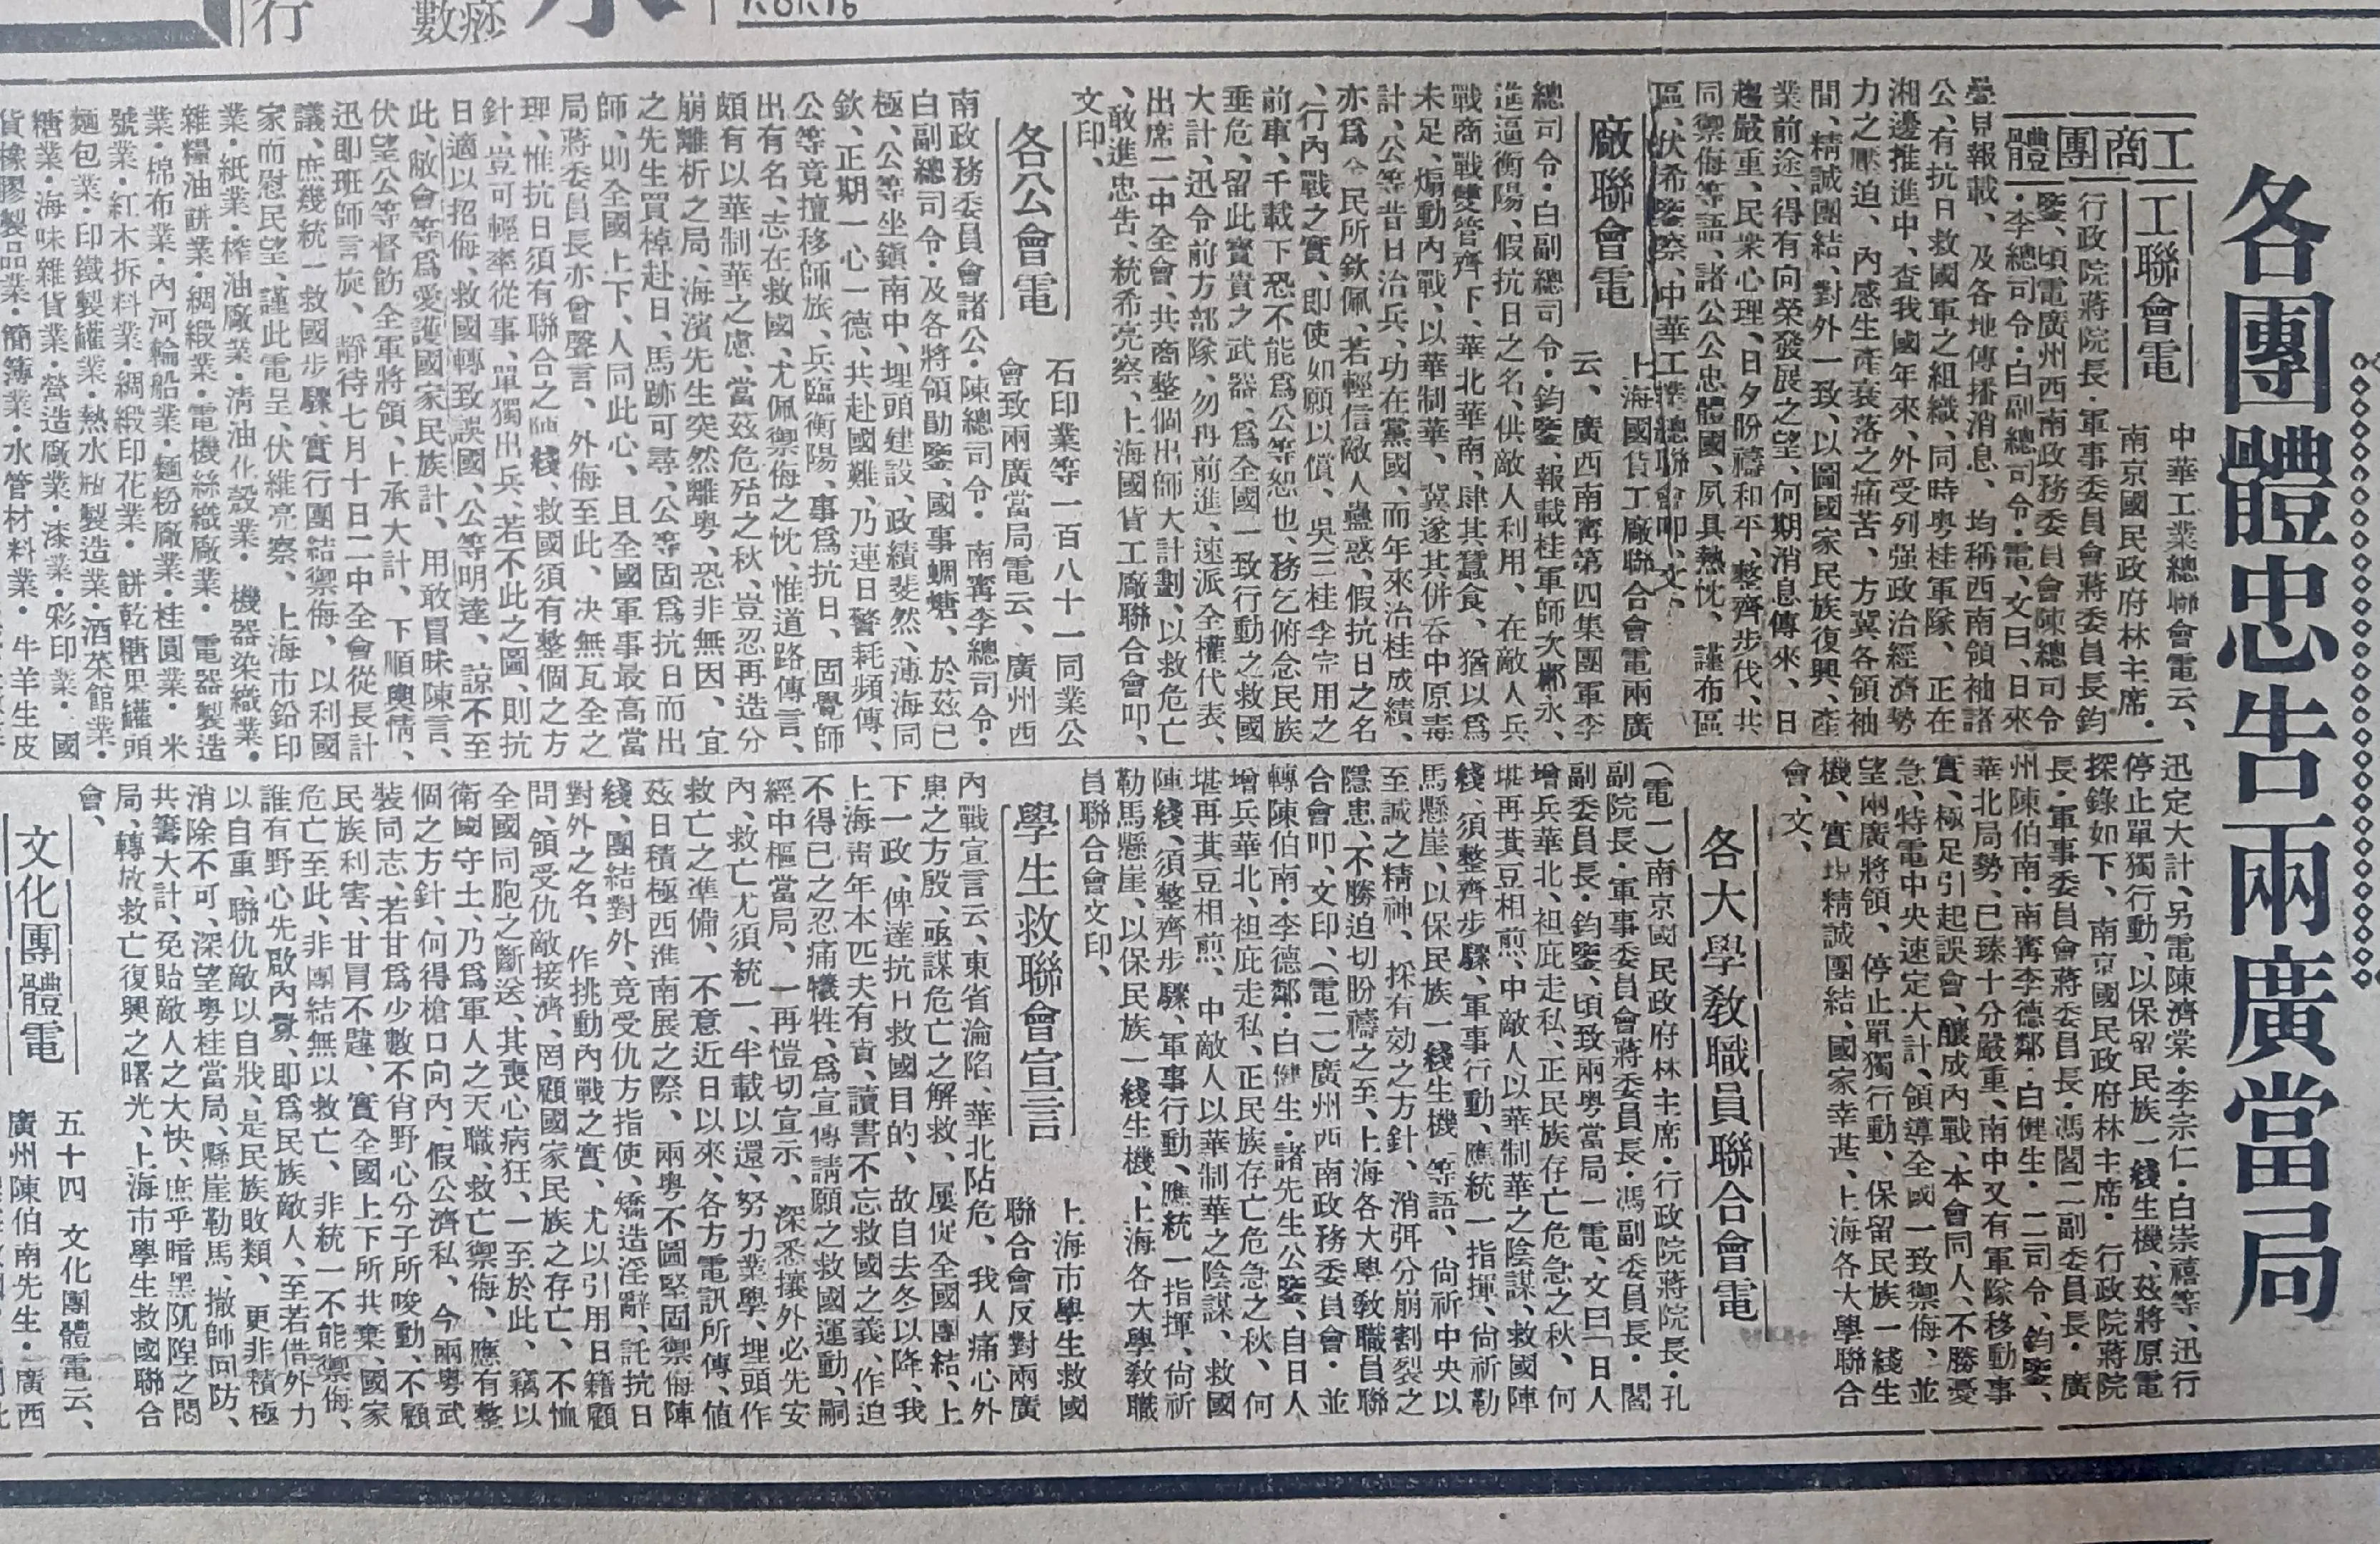 各團體忠告兩廣當局
工商團體
工聯會電
中華工業總聯會電云、
南京國民政府林主席·
行政院蔣院長·軍事委員會蔣委員長鈞
鑒、頃電廣州西南政務委員會陳總司令
·李總司令·白副總司令·電、文曰、日來
疊見報載、及各地傳播消息、均稱西南領袖諸
公、有抗日救國軍之組織、同時粵桂軍隊、正在
湘邊推進中、查我國年來、外受列强政治經濟勢
力之壓迫、內感生產衰落之痛苦、方冀各領袖
間、精誠團結、對外一致、以圖國家民族復興、產
業前途、得有向榮發展之望、何期消息傳來、日
趨嚴重、民衆心理、日夕盼禱和平、整齊步伐、共
同禦侮等語、諸公公忠體國、夙具熱忱、謹布區
區、伏希鑒察、中華工業總聯會叩、文、
廠聯會電
上海國貨工廠聯合會電兩廣
云、廣西南寗第四集團軍李
總司令·白副總司令·鈞鑒、報載桂軍師次郴永、
進逼衡陽、假抗日之名、供敵人利用、在敵人兵
戰商戰雙管齊下、華北華南、肆其蠶食、猶以爲
未足、煽動內戰、以華制華、冀遂其併吞中原毒
計、公等昔日治兵、功在黨國、而年來治桂成績、
亦爲全民所欽佩、若輕信敵人蠱惑、假抗日之名
、行內戰之實、即使如願以償、吳三桂李完用之
前車、千載下恐不能爲公等恕也、務乞俯念民族
垂危、留此寶貴之武器、爲全國一致行動之救國
大計、迅令前方部隊、勿再前進、速派全權代表、
出席二中全會、共商整個出師大計劃、以救危亡
、敢進忠告、統希亮察、上海國貨工廠聯合會叩、
文印、
各公會電
石印業等一百八十一同業公
會致兩廣當局電云、廣州西
南政務委員會諸公·陳總司令·南寗李總司令·
白副總司令·及各將領勛鑒、國事蜩螗、於茲已
極、公等坐鎮南中、埋頭建設、政績斐然、薄海同
欽、正期一心一德、共赴國難、乃連日警耗頻傳、
公等竟擅移師旅、兵臨衡陽、事爲抗日、固覺師
出有名、志在救國、尤佩禦侮之忱、惟道路傳言、
頗有以華制華之慮、當茲危殆之秋、豈忍再造分
崩離析之局、海濱先生突然離粵、恐非無因、宜
之先生買棹赴日、馬跡可尋、公等固爲抗日而出
師、則全國上下、人同此心、且全國軍事最高當
局蔣委員長亦曾聲言、外侮至此、决無瓦全之
理、惟抗日須有聯合之陣綫、救國須有整個之方
針、豈可輕率從事、單獨出兵、若不此之圖、則抗
日適以招侮、救國轉致誤國、公等明達、諒不至
此、敝會等爲愛護國家民族計、用敢冒昧陳言、
伏望公等督飭全軍將領、上承大計、下順輿情、
迅即班師言旋、靜待七月十日二中全會從長計
議、庶幾統一救國步驟、實行團結禦侮、以利國
家而慰民望、謹此電呈、伏維亮察、上海市鉛印
業·紙業·榨油廠業·清油化殼業·機器染織業·
雜糧油餅業·綢緞業·電機絲織廠業·電器製造
業·棉布業·內河輪船業·麵粉廠業·桂圓業·米
號業·紅木拆料業·綢緞印花業·餅乾糖果罐頭
麵包業·印鐵製罐業·熱水瓶製造業·酒菜館業·
糖業·海味雜貨業·營造廠業·漆業·彩印業·國
貨橡膠製品業·簡簿業·水管材料業·牛羊生皮
迅定大計、另電陳濟棠·李宗仁·白崇禧等、迅行
停止單獨行動、以保留民族一綫生機、茲將原電
探錄如下、南京國民政府林主席·行政院蔣院
長·軍事委員會蔣委員長·馮閻二副委員長·廣
州陳伯南·南寗李德鄰·白健生·二司令、鈞鑒、
華北局勢、已臻十分嚴重、南中又有軍隊移動事
實、極足引起誤會、釀成內戰、本會同人、不勝憂
急、特電中央速定大計、領導全國一致禦侮、並
望兩廣將領、停止單獨行動、保留民族一綫生
機、實現精誠團結、國家幸甚、上海各大學聯合
會、文、
各大學教職員聯合會電
（電一）南京國民政府林主席·行政院蔣院長·孔
副院長·軍事委員會蔣委員長·馮副委員長·閻
副委員長·鈞鑒、頃致兩粵當局一電、文曰「日人
增兵華北、袒庇走私、正民族存亡危急之秋、何
堪再萁豆相煎、中敵人以華制華之陰謀、救國陣
綫、須整齊步驟、軍事行動、應統一指揮、尙祈勒
馬懸崖、以保民族一綫生機、等語、尙祈中央以
至誠之精神、採有効之方針、消弭分崩割裂之
隱患、不勝迫切盼禱之至、上海各大學敎職員聯
合會叩、文印、（電二）廣州西南政務委員會·並
轉陳伯南·李德鄰·白健生·諸先生公鑒、自日人
增兵華北、袒庇走私、正民族存亡危急之秋、何
堪再萁豆相煎、中敵人以華制華之陰謀、救國
陣綫、須整齊步驟、軍事行動、應統一指揮、尙祈
勒馬懸崖、以保民族一綫生機、上海各大學敎職
員聯合會文印、
學生救聯會宣言
上海市學生救國
聯合會反對兩廣
內戰宣言云、東省淪陷、華北阽危、我人痛心外
患之方殷、亟謀危亡之解救、屢促全國團結、上
下一致、俾達抗日救國目的、故自去冬以降、我
上海靑年本匹夫有責、讀書不忘救國之義、作迫
不得已之忍痛犧牲、爲宣傳請願之救國運動、嗣
經中樞當局、一再愷切宣示、深悉攘外必先安
內、救亡尤須統一、半載以還、努力業學、埋頭作
救亡之準備、不意近日以來、各方電訊所傳、値
茲日積極西淮南展之際、兩粵不圖堅固禦侮陣
綫、團結對外、竟受仇方指使、矯造淫辭、託抗日
對外之名、作挑動內戰之實、尤以引用日籍顧
問、領受仇敵接濟、罔顧國家民族之存亡、不恤
全國同胞之斷送、其喪心病狂、一至於此、竊以
衛國守土、乃爲軍人之天職、救亡禦侮、應有整
個之方針、何得槍口向內、假公濟私、今兩粵武
裝同志、若甘爲少數不肖野心分子所唆動、不顧
民族利害、甘冒不韙、實全國上下所共棄、國家
危亡至此、非團結無以救亡、非統一不能禦侮、
誰有野心先啟內釁、即爲民族敵人、至若借外力
以自重、聯仇敵以自戕、是民族敗類、更非積極
消除不可、深望粵桂當局、懸崖勒馬、撤師回防、
共籌大計、免貽敵人之大快、庶乎暗黑阢隉之悶
局、轉放救亡復興之曙光、上海市學生救國聯合
會、
文化團體電
五十四文化團體電云、
廣州陳伯南先生·廣西